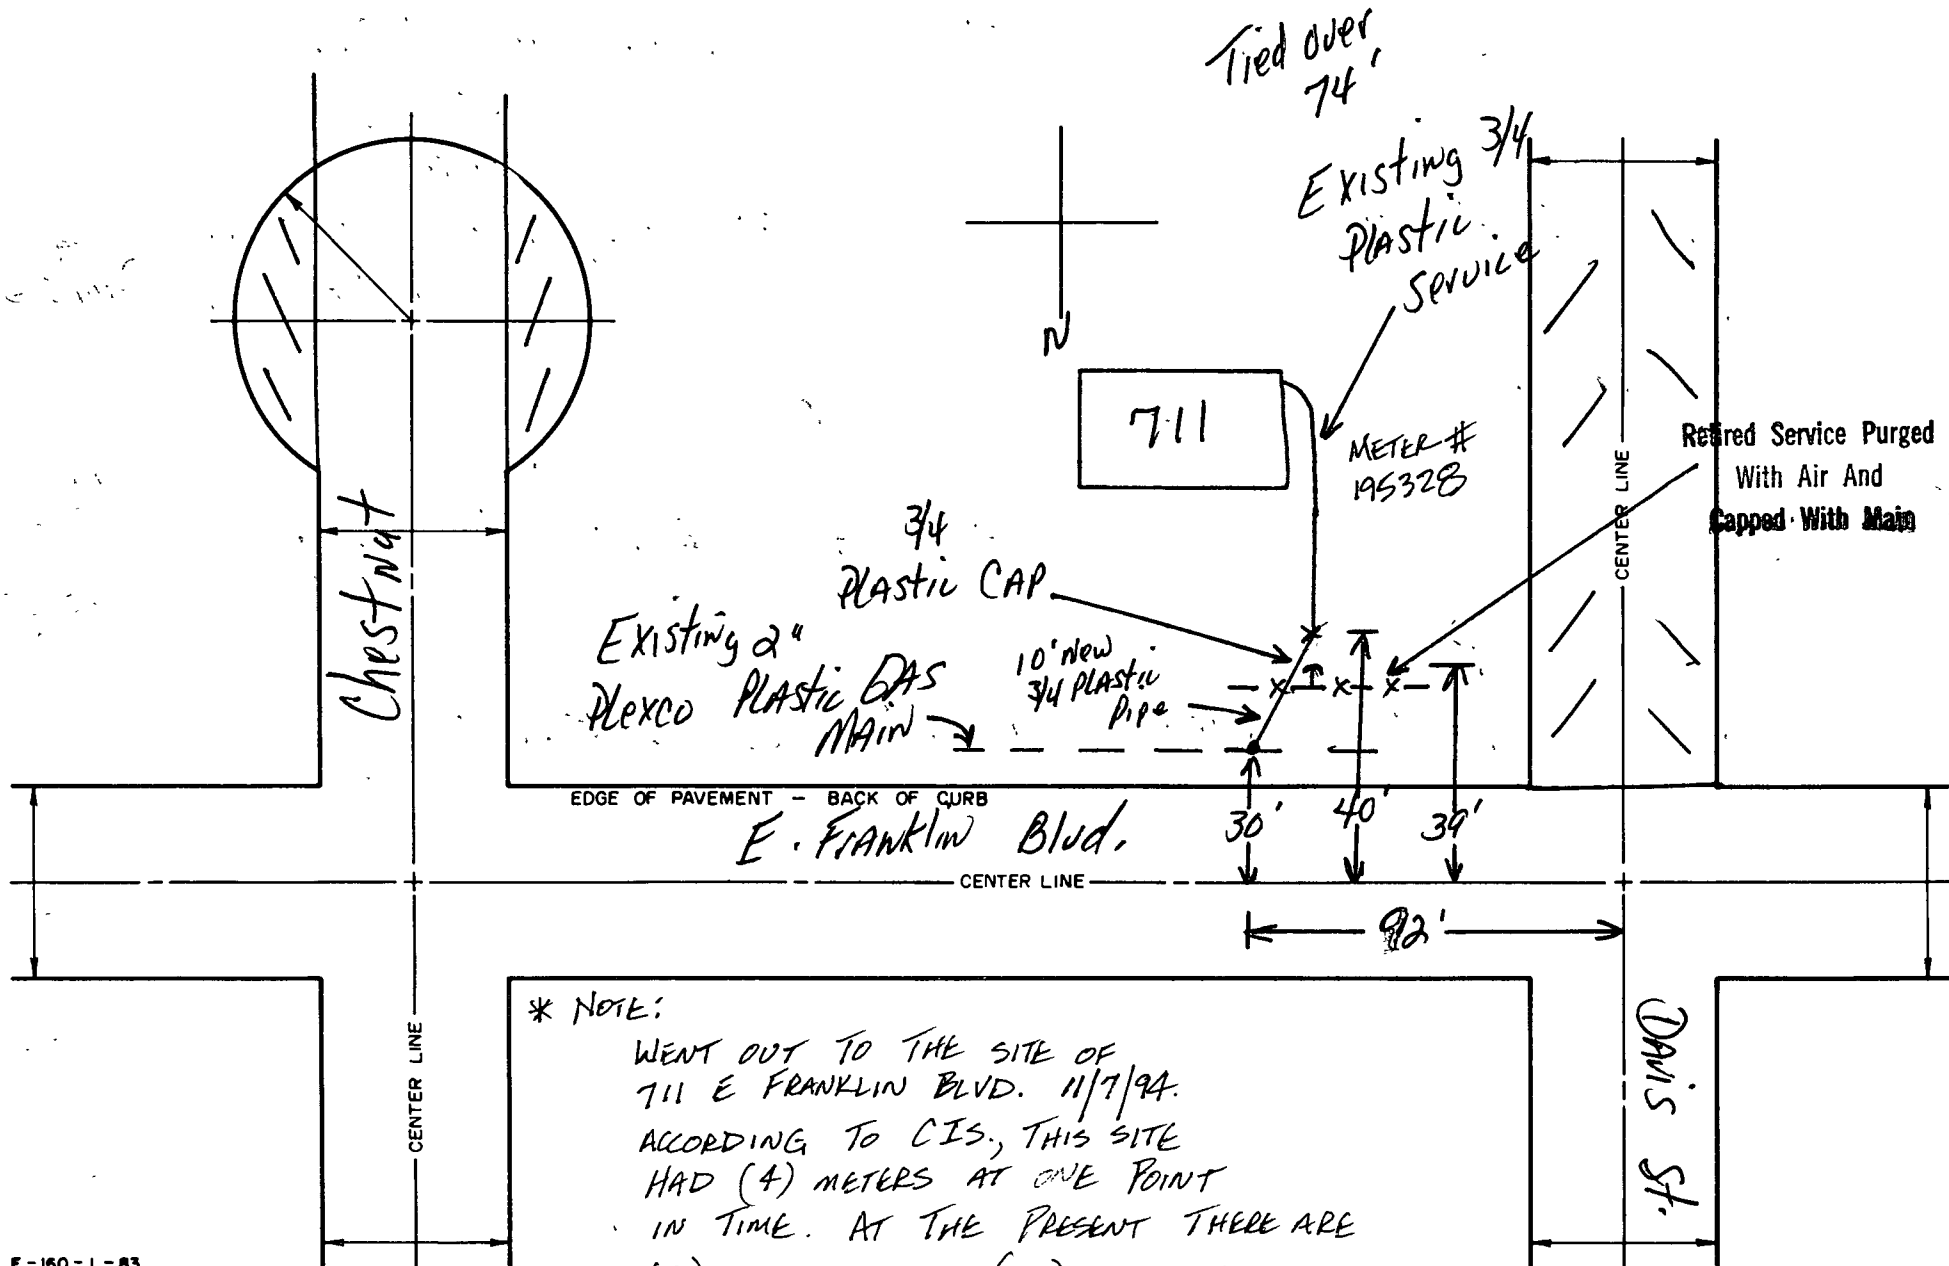 Tied Over
74'
Existing 3/4
Plastic
Service
N
711
METER #
195328
Retired Service Purged
With Air And
Capped With Main
CENTER LINE
3/4
Plastic CAP
Chestnut
Existing 2"
Plexco Plastic GAS
MAIN
10' New
3/4 Plastic
Pipe
EDGE OF PAVEMENT - BACK OF CURB
E. Franklin Blvd.
30'
40'
39'
CENTER LINE
92'
* NOTE:
WENT OUT TO THE SITE OF
711 E FRANKLIN BLVD. 11/7/94.
ACCORDING TO CIS., THIS SITE
HAD (4) METERS AT ONE POINT
IN TIME. AT THE PRESENT THERE ARE
CENTER LINE
Davis St.
F-160-1-83